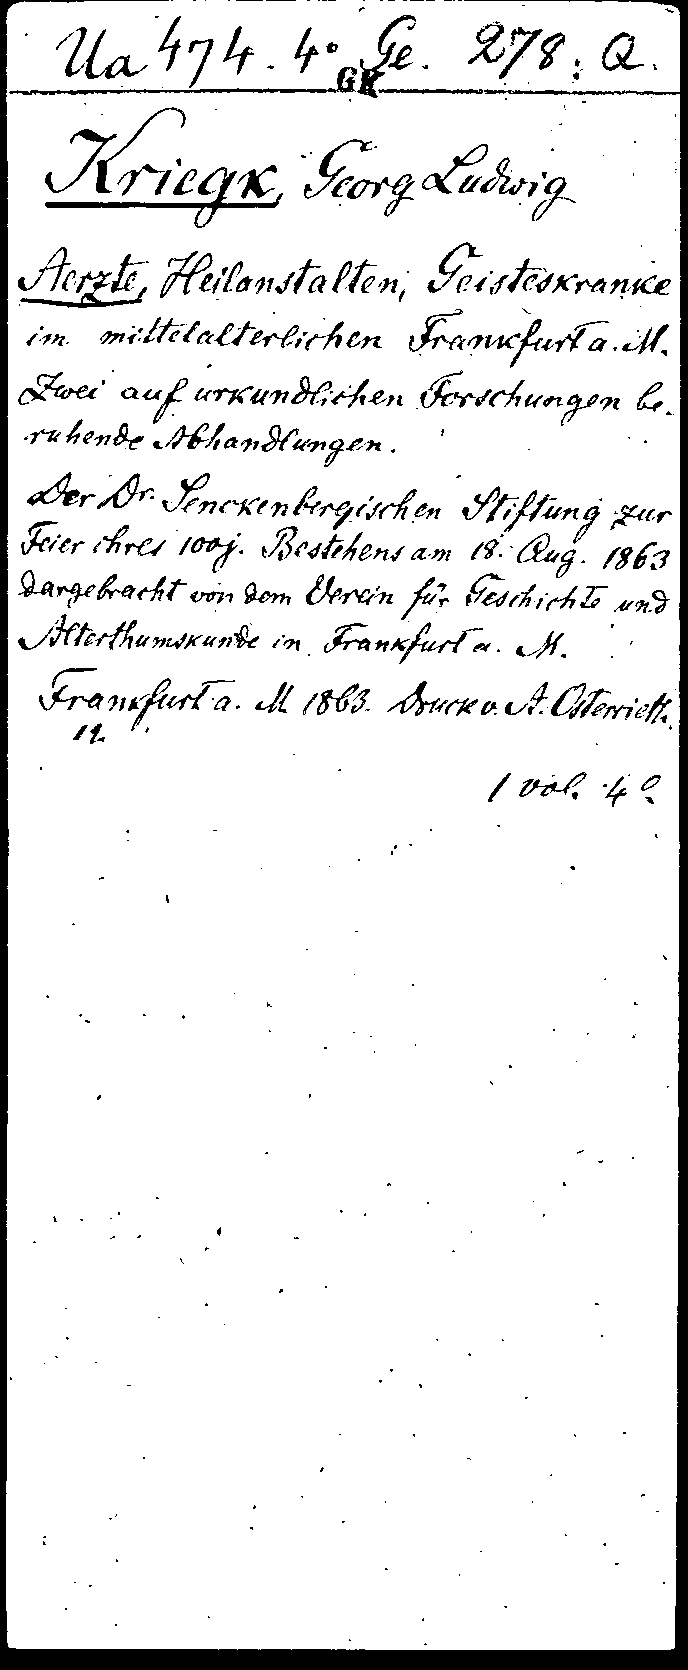 Ua 474. 4° Ge. 278. Q.
GK
Kriegk, Georg Ludwig
Aerzte, Heilanstalten, Geisteskranke
im mittelalterlichen Frankfurt a. M.
Zwei auf urkundlichen Forschungen be-
ruhende Abhandlungen.
Der Dr. Senckenbergischen Stiftung zur
Feier ihres 100j. Bestehens am 18. Aug. 1863
dargebracht von dem Verein für Geschichte und
Alterthumskunde in Frankfurt a. M.
Frankfurt a. M 1863. Druck v. A. Osterrieth.
1 vol. 4°.